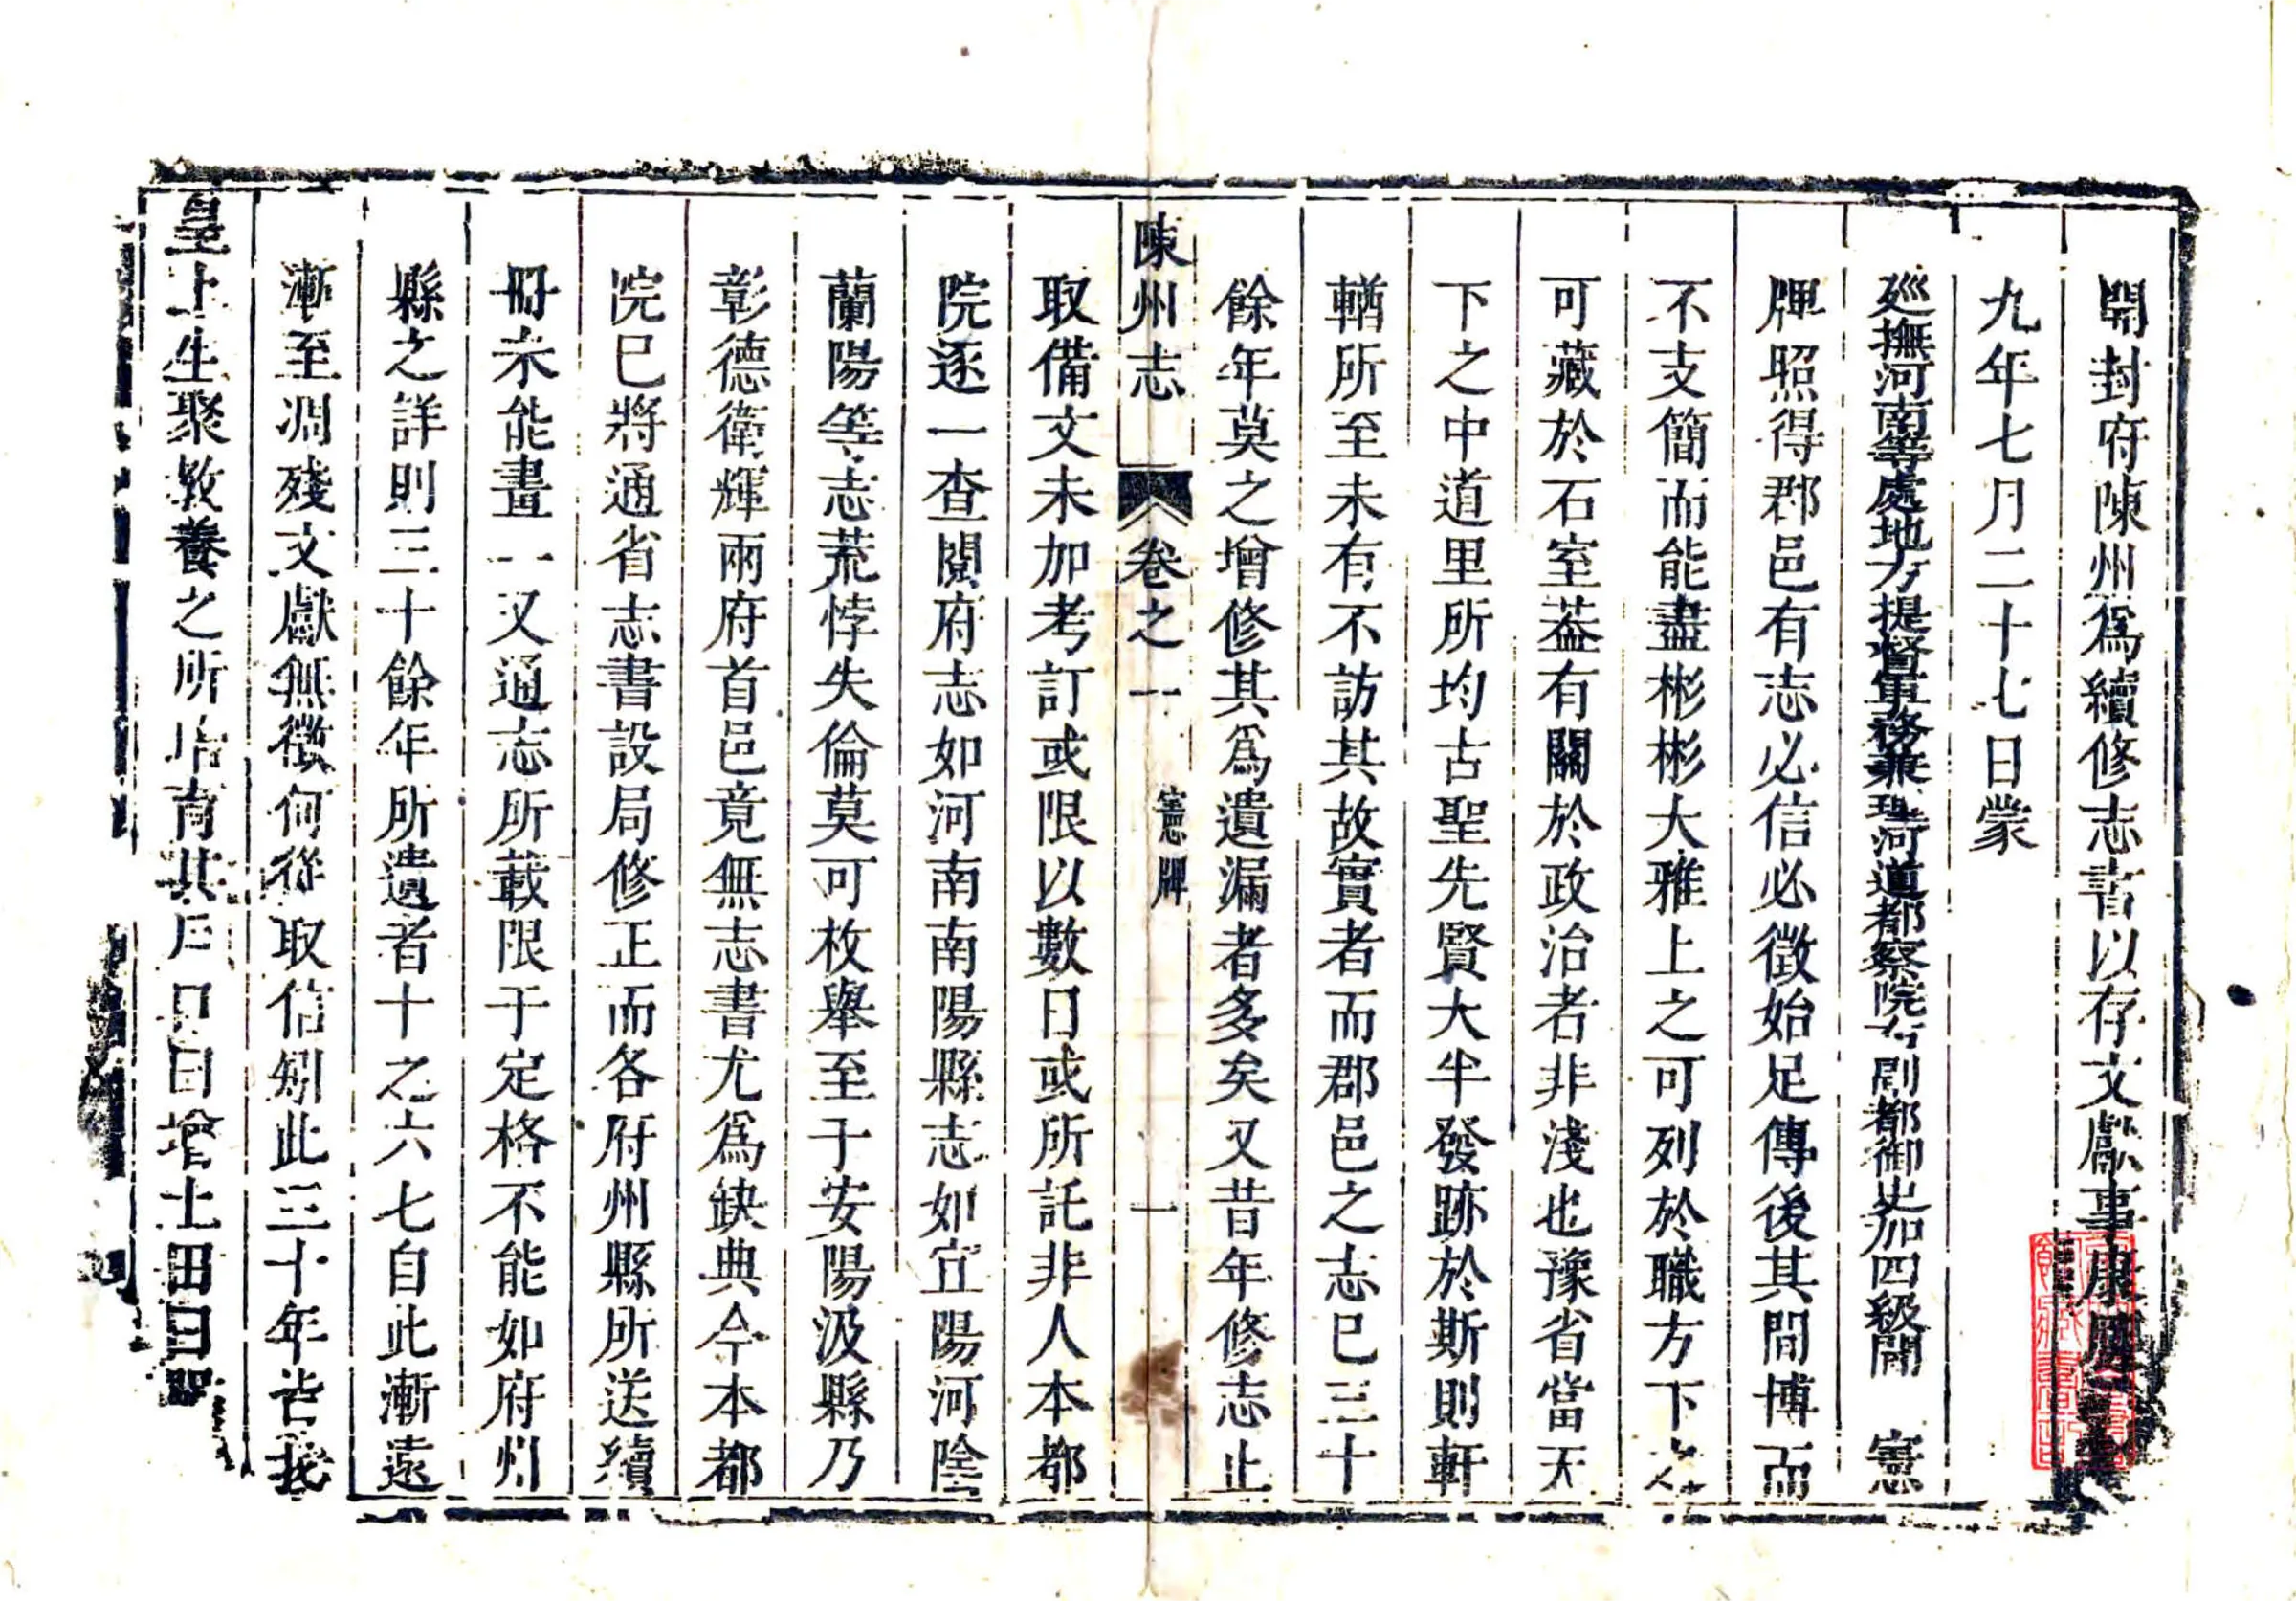 開封府陳州爲續修志書以存文獻事康熙
九年七月二十七日蒙
廵撫河南等處地方提督軍務兼理河道都察院右副都御史加四級閻 憲
牌照得郡邑有志必信必徵始足傳後其間博而
不支簡而能盡彬彬大雅上之可列於職方下之
可藏於石室葢有關於政治者非淺也豫省當天
下之中道里所均古聖先賢大半發跡於斯則軒
輶所至未有不訪其故實者而郡邑之志巳三十
餘年莫之增修其爲遺漏者多矣又昔年修志止
陳州志 卷之一 憲牌 一
取備文未加考訂或限以數日或所託非人本都
院逐一查閱府志如河南南陽縣志如宜陽河陰
蘭陽等志荒悖失倫莫可枚舉至于安陽汲縣乃
彰德衛輝兩府首邑竟無志書尤爲缺典今本都
院巳將通省志書設局修正而各府州縣所送續
冊未能畫一又通志所載限于定格不能如府州
縣之詳則三十餘年所遺者十之六七自此漸遠
漸至凋殘文獻無徵何從取信矧此三十年皆我
皇上生聚教養之所培育其戶口日增土田日闢